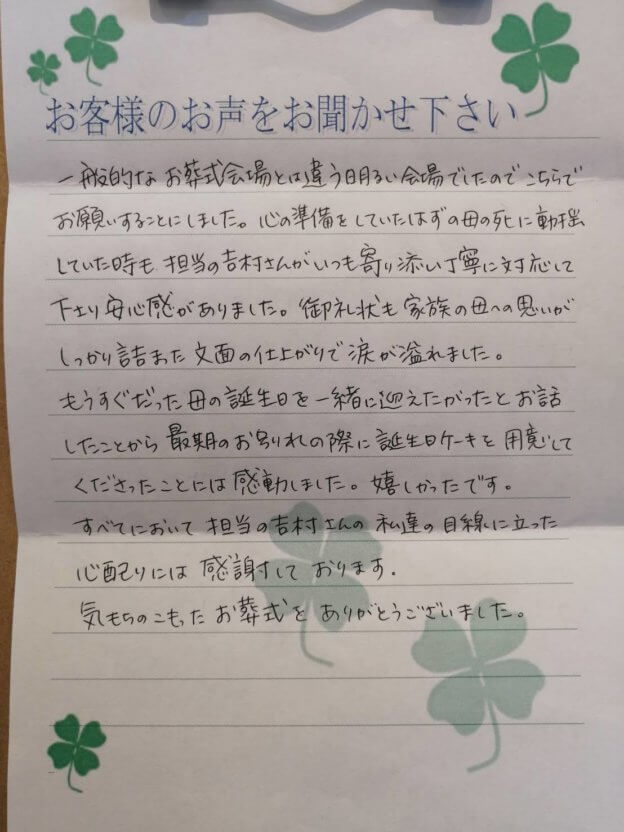 お客様のお声をお聞かせ下さい
一般的な お葬式会場とは違う明るい会場でしたので こちらで
お願いすることにしました。心の準備をしていたはずの母の死に動揺
していた時も 担当の吉村さんがいつも寄り添い丁寧に対応して
下さり安心感がありました。御礼状も 家族の母への思いが
しっかり詰まった文面の仕上がりで涙が溢れました。
もうすぐだった母の誕生日を一緒に迎えたかったとお話
したことから 最期のお別れの際に誕生日ケーキを用意して
くださったことには感動しました。嬉しかったです。
すべてにおいて 担当の吉村さんの 私達の目線に立った
心配りには 感謝して おります.
気もちのこもった お葬式を ありがとうございました。